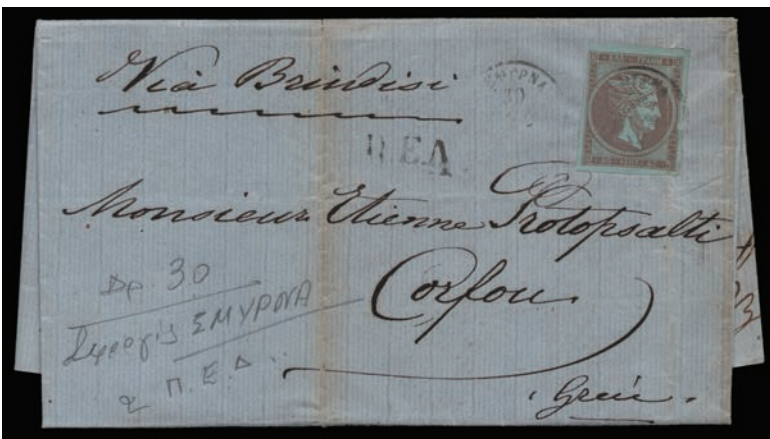 Via Brindisi
ΣΜΥΡΝΑ
30
ΠΕΔ
Monsieur Etienne Protopsalti
Corfou
Δρ 30
Σφραγίς ΣΜΥΡΝΑ
& Π.Ε.Δ..